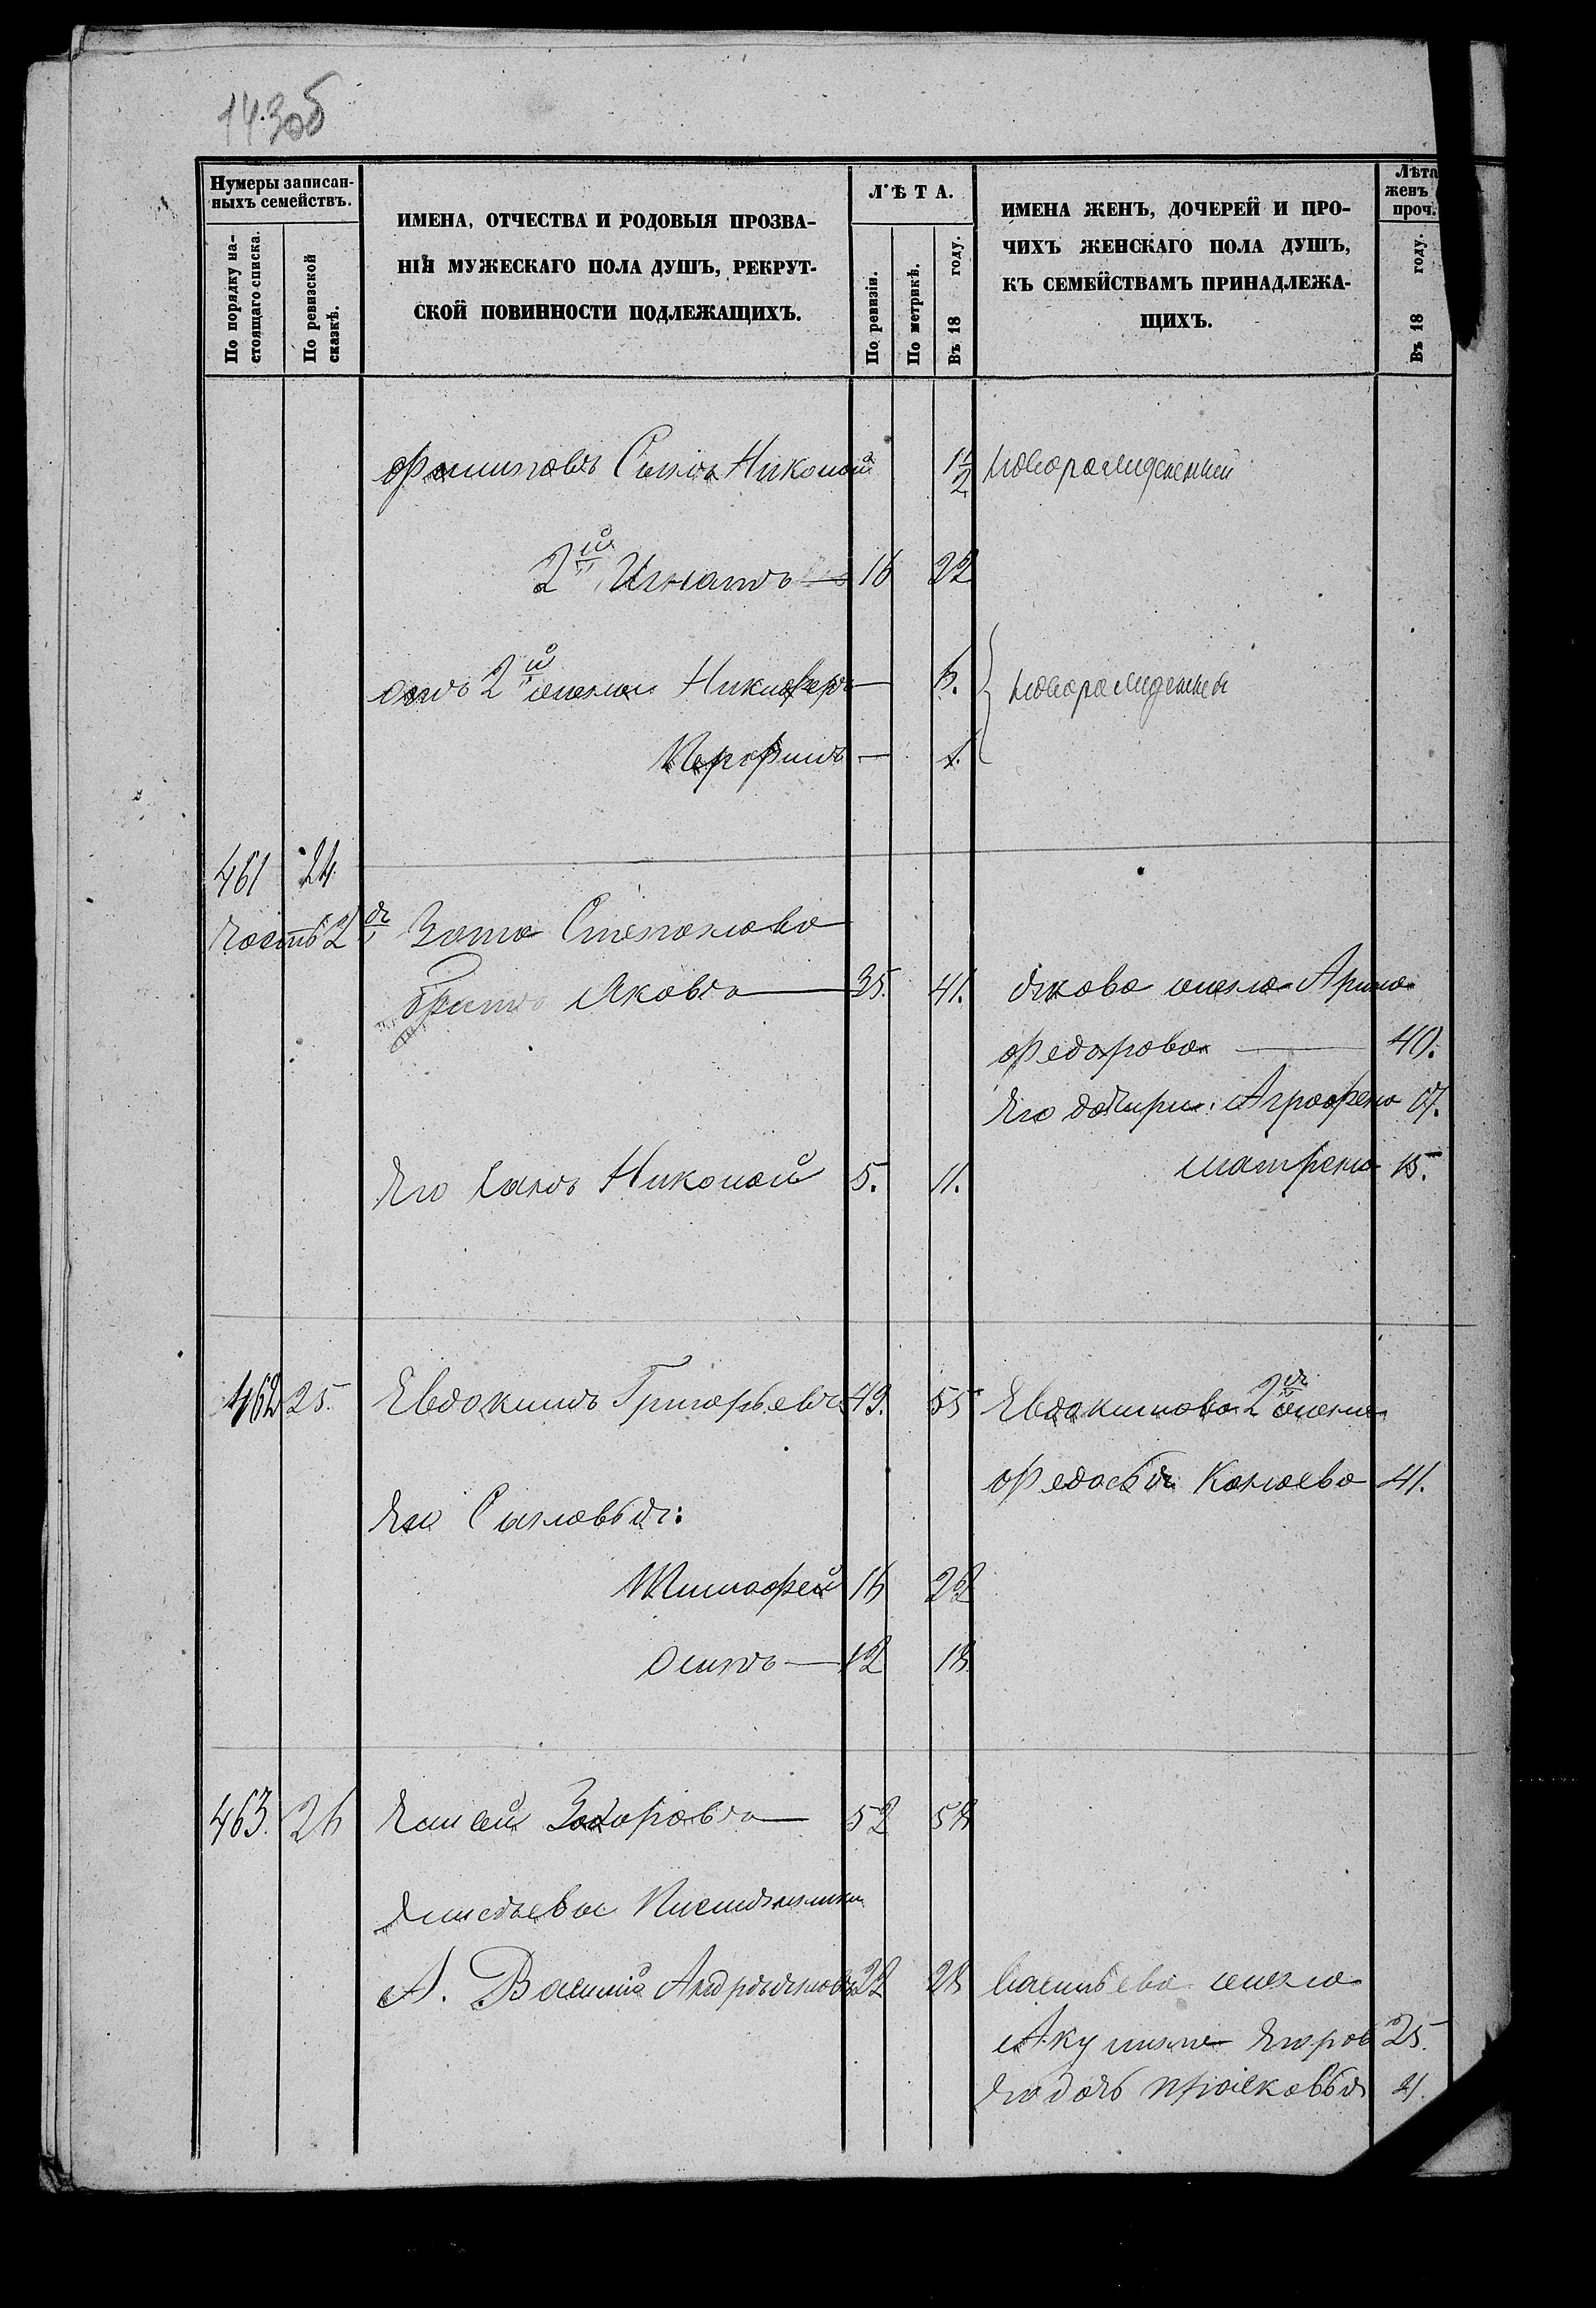 143об
Нумеры записан-
ныхъ семействъ.
По порядку на-
стоящаго списка.
По ревизской
сказкѣ.
ИМЕНА, ОТЧЕСТВА И РОДОВЫЯ ПРОЗВА-
НІЯ МУЖЕСКАГО ПОЛА ДУШЪ, РЕКРУТ-
СКОЙ ПОВИННОСТИ ПОДЛЕЖАЩИХЪ.
ЛѢТА.
По ревизіи.
По метрикѣ.
Въ 18 году.
ИМЕНА ЖЕНЪ, ДОЧЕРЕЙ И ПРО-
ЧИХЪ ЖЕНСКАГО ПОЛА ДУШЪ,
КЪ СЕМЕЙСТВАМЪ ПРИНАДЛЕЖА-
ЩИХЪ.
Лѣта
женъ
проч.
Въ 18 году.
Филиповъ Сынъ Николай 1½ новорожденный
2й Игнатъ 16 22
отъ 2й жены Никифоръ 6. новорожденные
Перфилъ 1.
461 24
часть 2я Зота Степанова
братъ Яковъ 35. 41. Якова жена Арина
Федорова 40.
Его дочери: Аграфена 17.
Его Сынъ Николай 5. 11. Матрена 15.
462 25. Евдокимъ Григорьевъ 49. 55 Евдокимова 2я жена
Федосья Конаева 41.
Его Сыновья:
Тимофей 16 22
Осипъ 12 18
463. 26 Елисей 52 58
Елисѣевы Племянники
А. Василій Андрѣяновъ 22 28 Васильева жена
Акулина Егоров 25.
Его дочь Прасковья